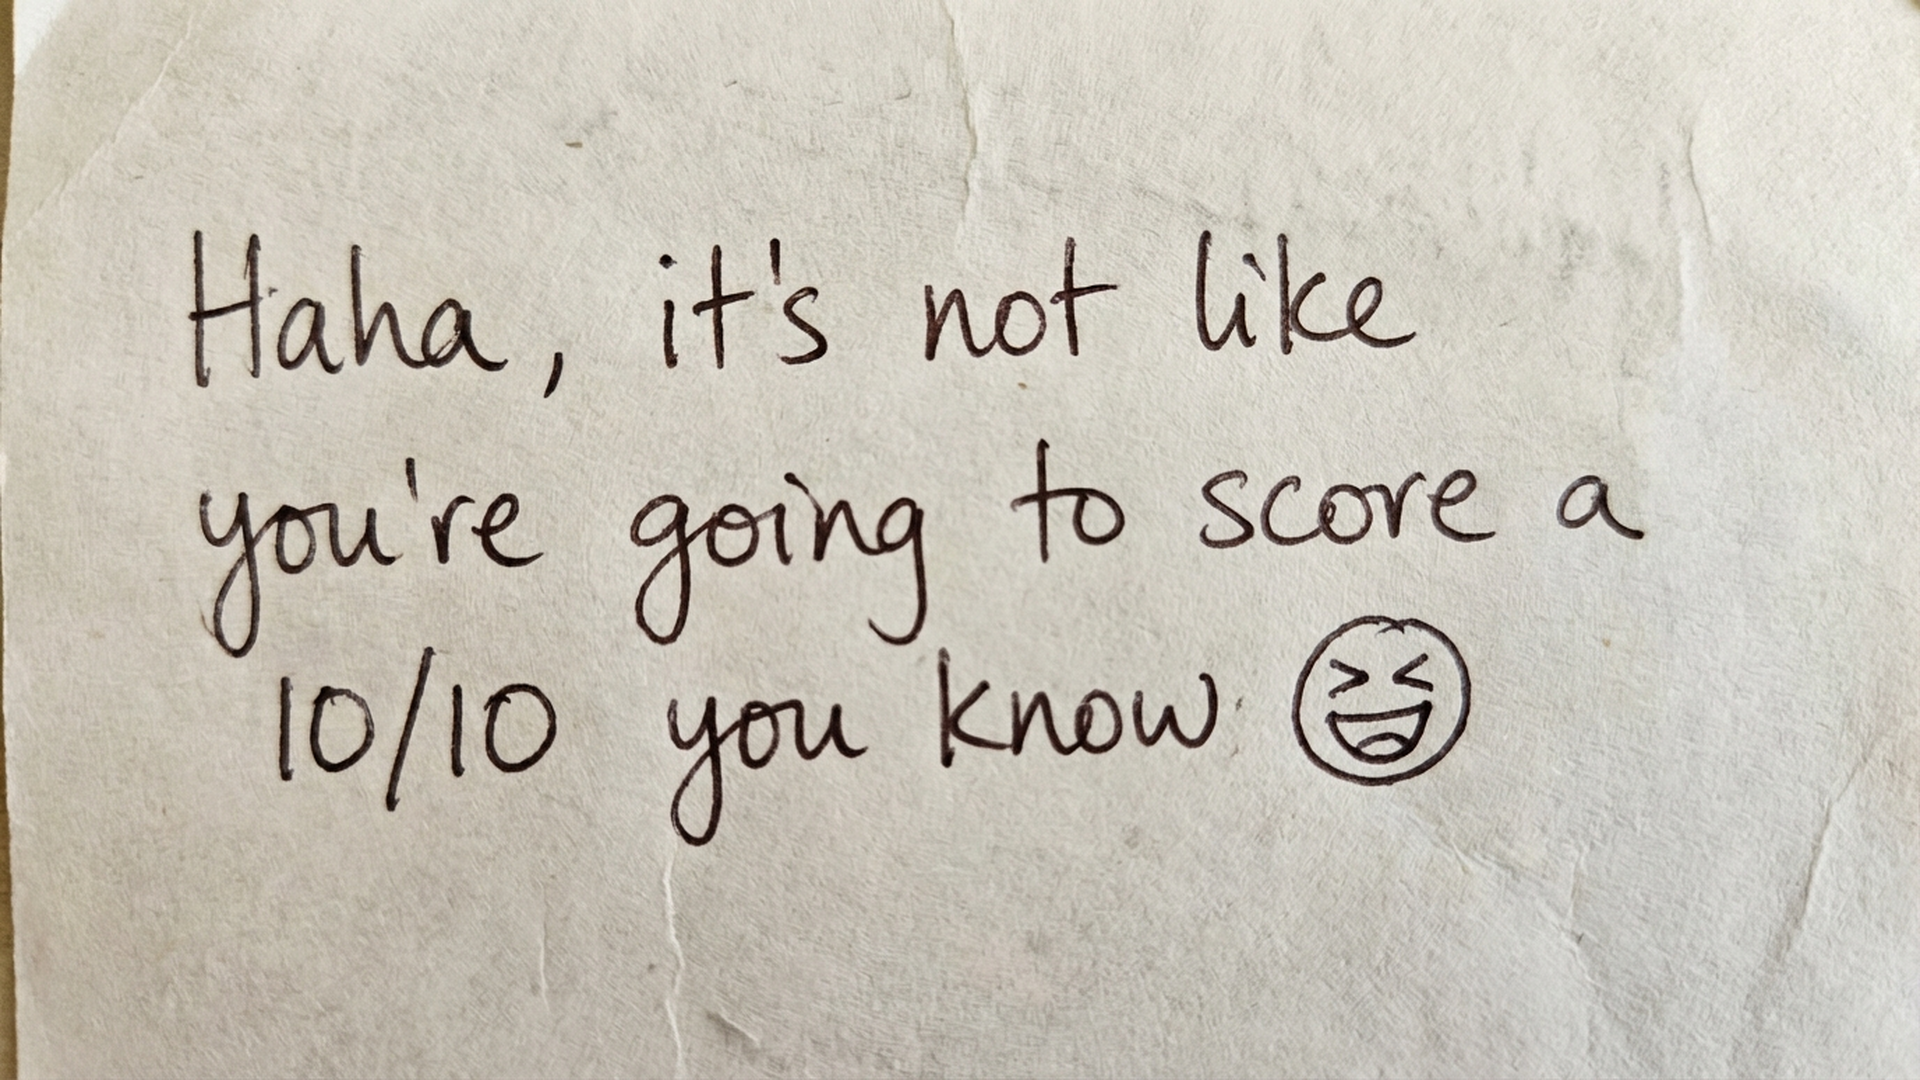 Haha, it's not like
you're going to score a
10/10 you know 😆